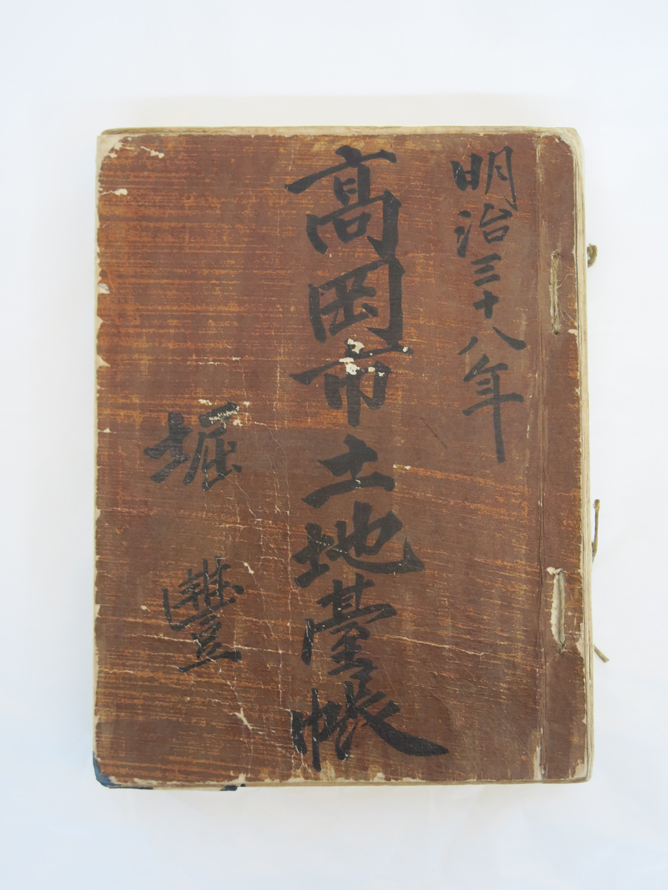 明治三十八年
高岡市土地臺帳
堀豐